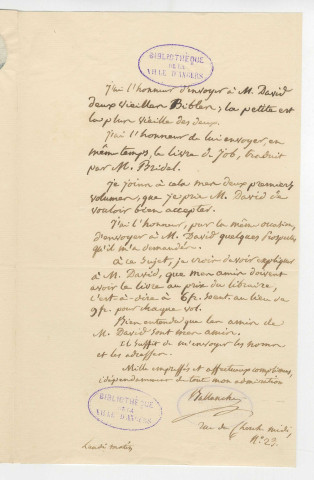 BIBLIOTHÈQUE
DE LA
VILLE D'ANGERS
J'ai l'honneur d'envoyer à M. David
deux vieilles Bibles; la petite est
la plus vieille des deux.
J'ai l'honneur de lui envoyer, en
même temps, le livre de Job, traduit
par M. Bridel.
Je joins à cela mes deux premiers
volumes, que je prie M. David de
vouloir bien accepter.
J'ai l'honneur, par la même occasion,
d'envoyer à M. David quelques Prospectus
qu'il m'a demandés.
à ce sujet, je crois devoir expliquer
à M. David, que mes amis doivent
avoir le livre au prix du libraire,
c'est-à-dire à 6 fr. 50 cent. au lieu de
9 fr. pour chaque vol.
Bien entendu que les amis de
M. David sont mes amis.
Il suffit de m'envoyer les noms
et les adresses.
Mille empressés et affectueux complimens,
indépendamment de tout mon admiration
Ballanche
rue du Cherche midi,
N.º 23.
BIBLIOTHÈQUE
DE LA
VILLE D'ANGERS
Lundi matin